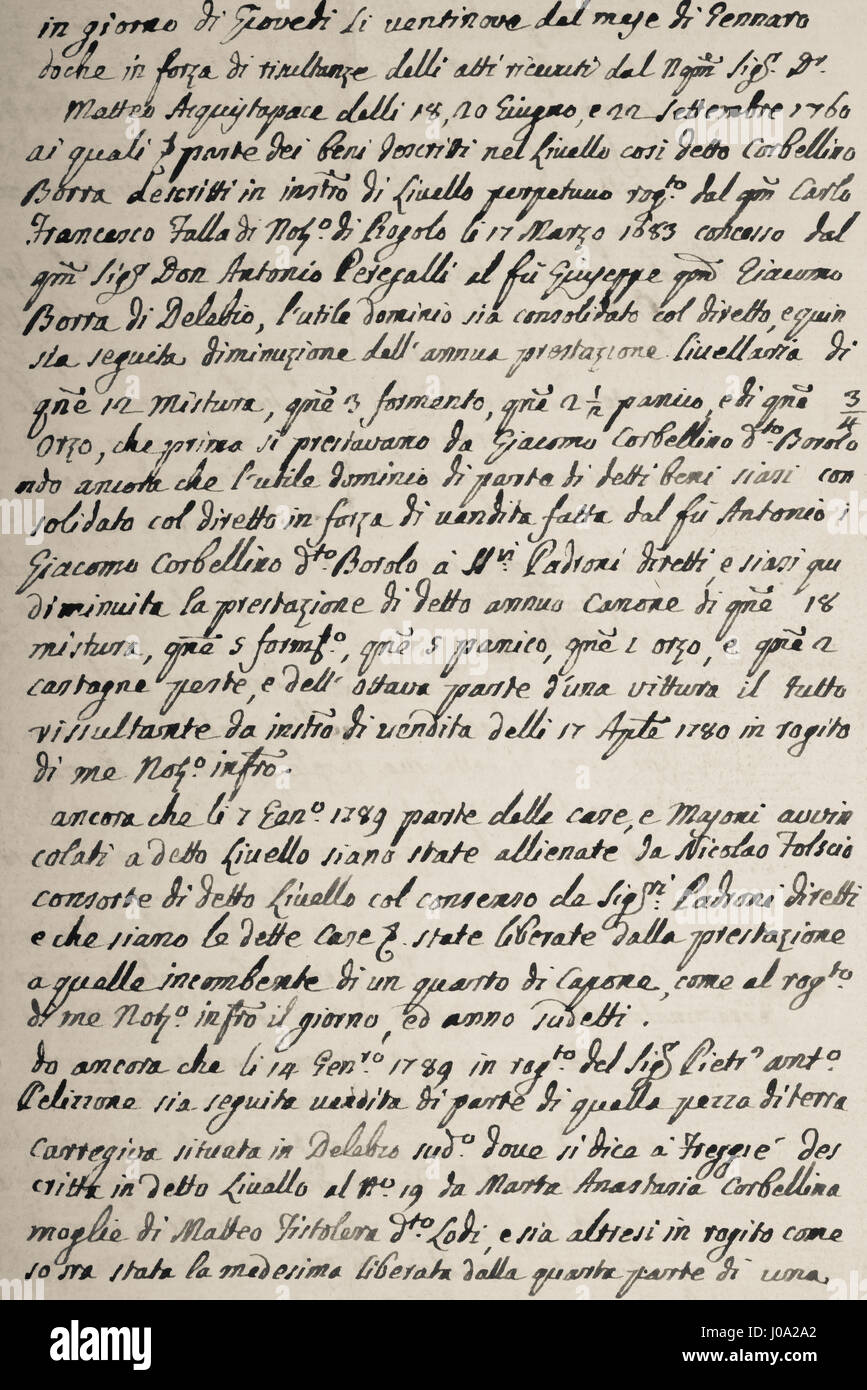 in giorno di Giovedi li ventinove del mese di Gennaro
doche in forza di risultanze delli atti ricevuti dal Nqm Sigr. Dr.
Matteo Acquistapace delli 18, 20 Giugno, e 22 Settembre 1760
ai quali parte dei beni descritti nel Livello così detto Corbellino
Borra descritti in instro di Livello perpetuuo rogto dal qm Carlo
Francesco Falla di Noto di Rogolo li 17 Marzo 1683 concesso dal
qm Sigr Don Antonio Peregalli al fù Giuseppe qm Giacomo
Borra di Delebio, l'utile dominio sia consolidato col diretto, e quin
sia seguita diminuzione dell'annua prestazione livellaria di
qne 12 mistura, qne 3 formento, qne 2 1/2 panico, e di qne 3/4
Orzo, che prima si prestavano da Giacomo Corbellino dto Borolo
ndo ancora che l'utile dominio di parte di detti beni siasi con
solidato col diretto in forza di vendita fatta dal fù Antonio
Giacomo Corbellino dto Borolo à SSri Padroni diretti, e siasi qu
diminuita la prestazione di detto annuo Canone di qne 18
mistura, qne 5 formto, qne 5 panico, qne 1 orzo, e qne 2
castagne peste, e dell' ottava parte d'una vittura il tutto
rissultante da instro di vendita delli 17 Aple 1780 in rogito
di me Noto infro.
ancora che li 7 Geno 1789 parte delle case, e Masoni avvin
colati a detto Livello siano state allienate da Nicolao Folscio
consorte di detto Livello col consenso de Sigri Padroni diretti
e che siano le dette Case state liberate dalla prestazione
a quelle incombente di un quarto di Capone, come al rogto
di me Noto infro il giorno, ed anno sudetti.
do ancora che li 14 Genro 1789 in rogto del Sigr Pietro Anto
Pelizzone sia seguita vendita di parte di quella pezza di terra
Carregiva situata in Delebio sudo dove si dice à Freggie des
critta in detto Livello al No 19 da Marta Anastasia Corbellina
moglie di Matteo Fistolera dto Lodi, e sia altresi in rogito come
sosra stata la medesima liberata dalla quarta parte di una
alamy
Image ID: J0A2A2
www.alamy.com